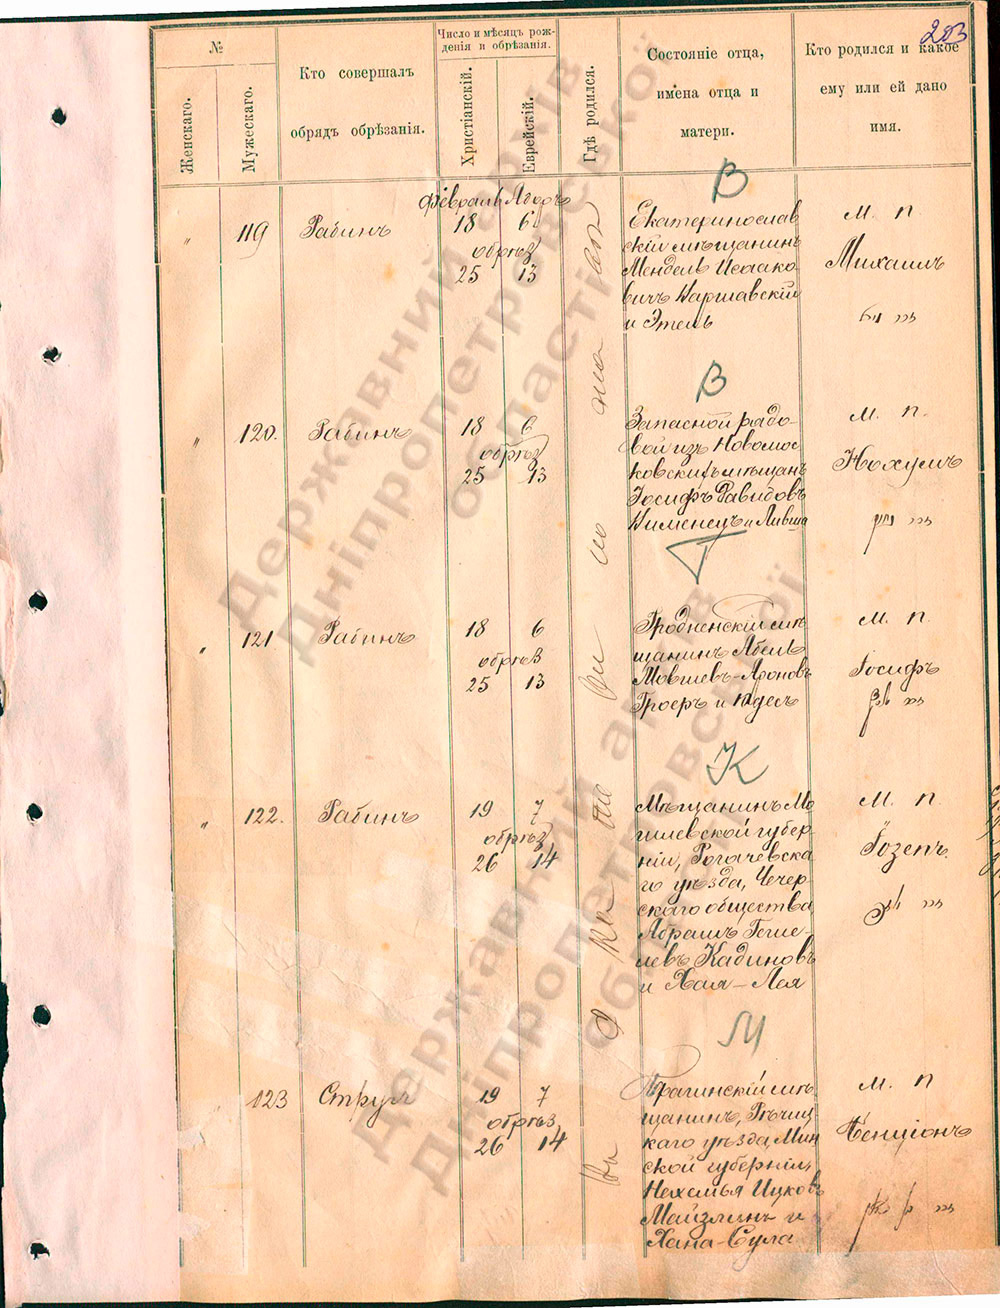 203
№
Женскаго.
Мужескаго.
Кто совершалъ
обрядъ обрѣзанія.
Число и мѣсяцъ рож-
денія и обрѣзанія.
Христіанскій.
Еврейскій.
Гдѣ родился.
Состояніе отца,
имена отца и
матери.
Кто родился и какое
ему или ей дано
имя.
В
Февраль Адаръ
" 119 Рабинъ 18 6
обрѣз
25 13
Екатеринослав
скій мѣщанинъ
Мендель Исаако
вичъ Варшавскій
и Этель
м. п.
Михаилъ
В
" 120. Рабинъ 18 6
обрѣз
25 13
Запасной рядо-
вой изъ Новомос
ковскихъ мѣщанъ
Іосифъ Давидовъ
м. п.
Нохумъ
Г
" 121 Рабинъ 18 6
обрѣз
25 13
Гродненскій мѣ
щанинъ Абель
Мовшевъ-Ароновъ
м. п.
Іосифъ
К
" 122. Рабинъ 19 7
обрѣз
26 14
Мѣщанинъ Мо
гилевской губер-
ніи, Рогачевска
го уѣзда, Чечер
скаго общества
Абрамъ
левъ Кадиновъ
и Хая-Лея
м. п.
М
123 19 7
обрѣз
26 14
Брагинскій мѣ
щанинъ, Рѣчиц
каго уѣзда, Мин
ской губерніи,
Нехемья Ицковъ
Майзлинъ и
Хана-Сула
м. п
Бенціонъ
Державний архів
Дніпропетровської
області
Державний архів
Дніпропетровської
області